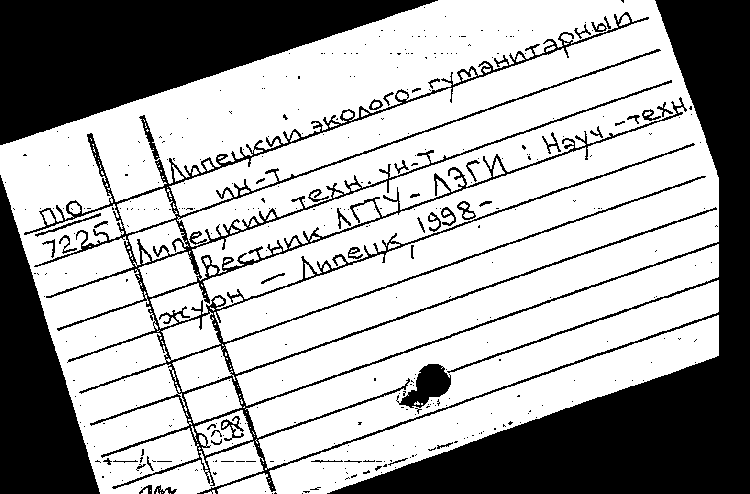 Липецкий эколого-гуманитарный
ин-т.
П10
7225
Липецкий техн. ун-т.
Вестник ЛГТУ - ЛЭГИ : Науч.-техн.
журн. — Липецк, 1998-
0398
4